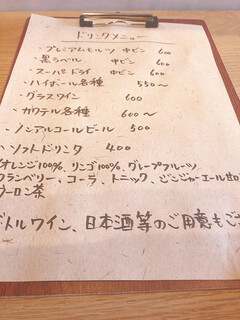 ドリンクメニュー
・プレミアムモルツ 中ビン 600
・黒ラベル 中ビン 600
・スーパードライ 中ビン 600
・ハイボール各種 550〜
・グラスワイン 600
・カクテル各種 600〜
・ノンアルコールビール 500
・ソフトドリンク 400
オレンジ100%、リンゴ100%、グレープフルーツ
クランベリー、コーラ、トニック、ジンジャーエール甘口
ウーロン茶
ボトルワイン、日本酒等のご用意もご